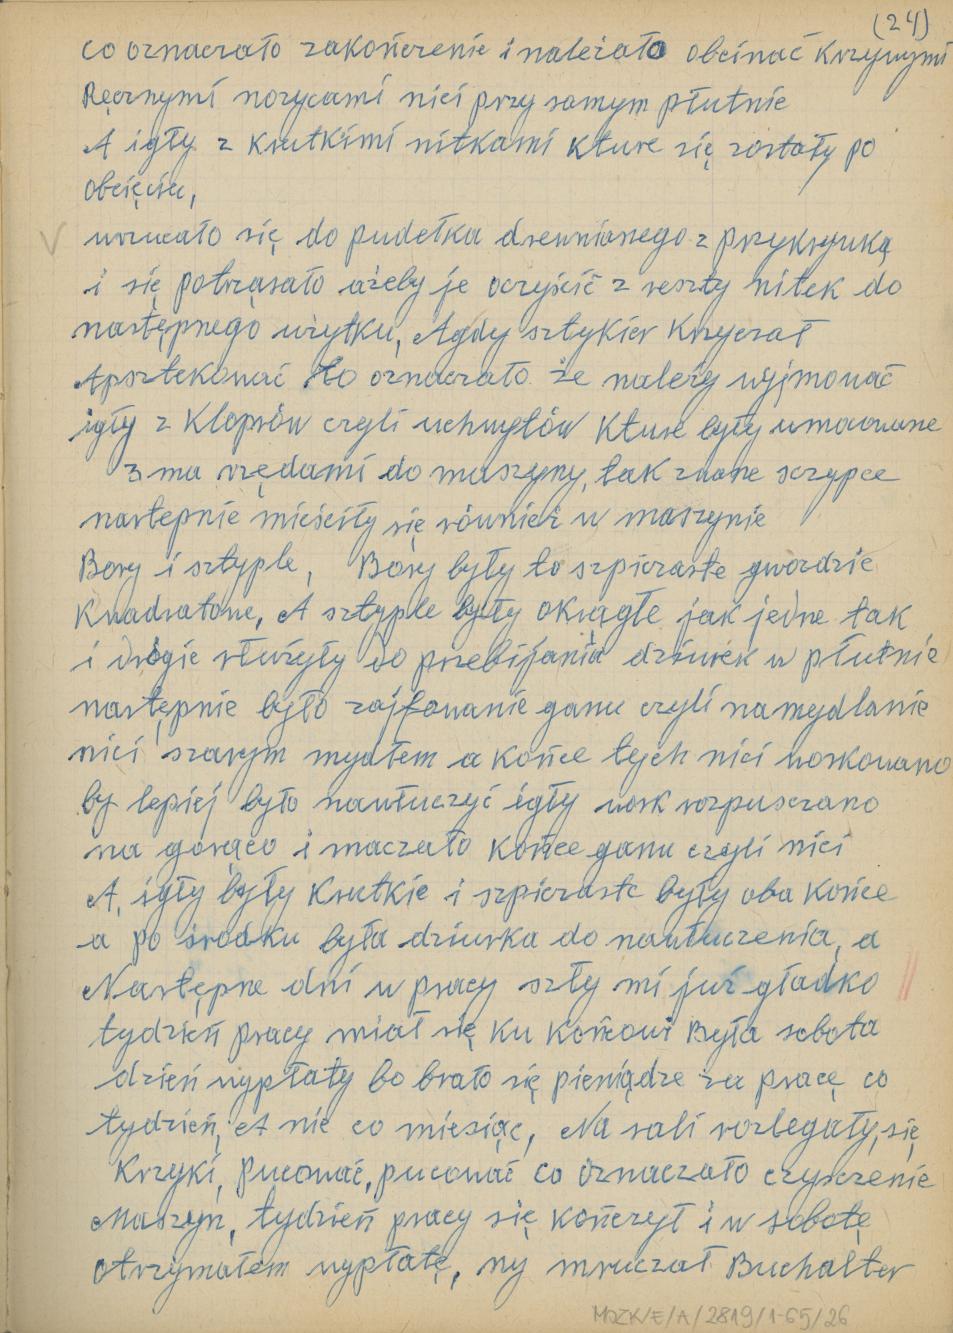 (24)
co oznaczało zakończenie i należało obcinać krzywymi
Ręcznymi nożycami nici przy samym płutnie
A igły z krutkimi nitkami kture się zostały po
obcięciu,
wrzucało się do pudełka drewnianego z przykrywką
i się potrząsało ażeby je oczyścić z reszty nitek do
następnego użytku, Agdy sztykier krzyczał
Apsztekować to oznaczało że należy wyjmować
igły z klopsów czyli uchwytów kture były umocowane
3 ma rzędami do maszyny, tak zwane sczypce
nastepnie mieściły się również w maszynie
Bory i sztyple, Bory były to szpiczaste gwozdzie
Kwadratowe, A sztyple były okrągłe jak jedne tak
i drógie służyły do przebijania dziurek w płutnie
następnie było zajfowanie ganu czyli namydlanie
nici szarym mydłem a końce tych nici woskowano
by lepiej było nawłuczyć igły wosk rozpusczano
na gorąco i maczało końce ganu czyli nici
A, igły były krutkie i szpiczaste były oba końce
a po środku była dziurka do nawłuczenia, a
Następne dni w pracy szły mi już gładko
tydzień pracy miał się ku końcowi Była sobota
dzień wypłaty bo brało się pieniądze za pracę co
tydzień, A nie co miesiąc, Na sali rozlegały się
Krzyki, pucować, pucować co oznaczało czysczenie
Maszyn, tydzień pracy się kończył i w sobotę
otrzymałem wypłatę, ny mruczał Buchalter
MDZK/E/A/2819/1-65/26